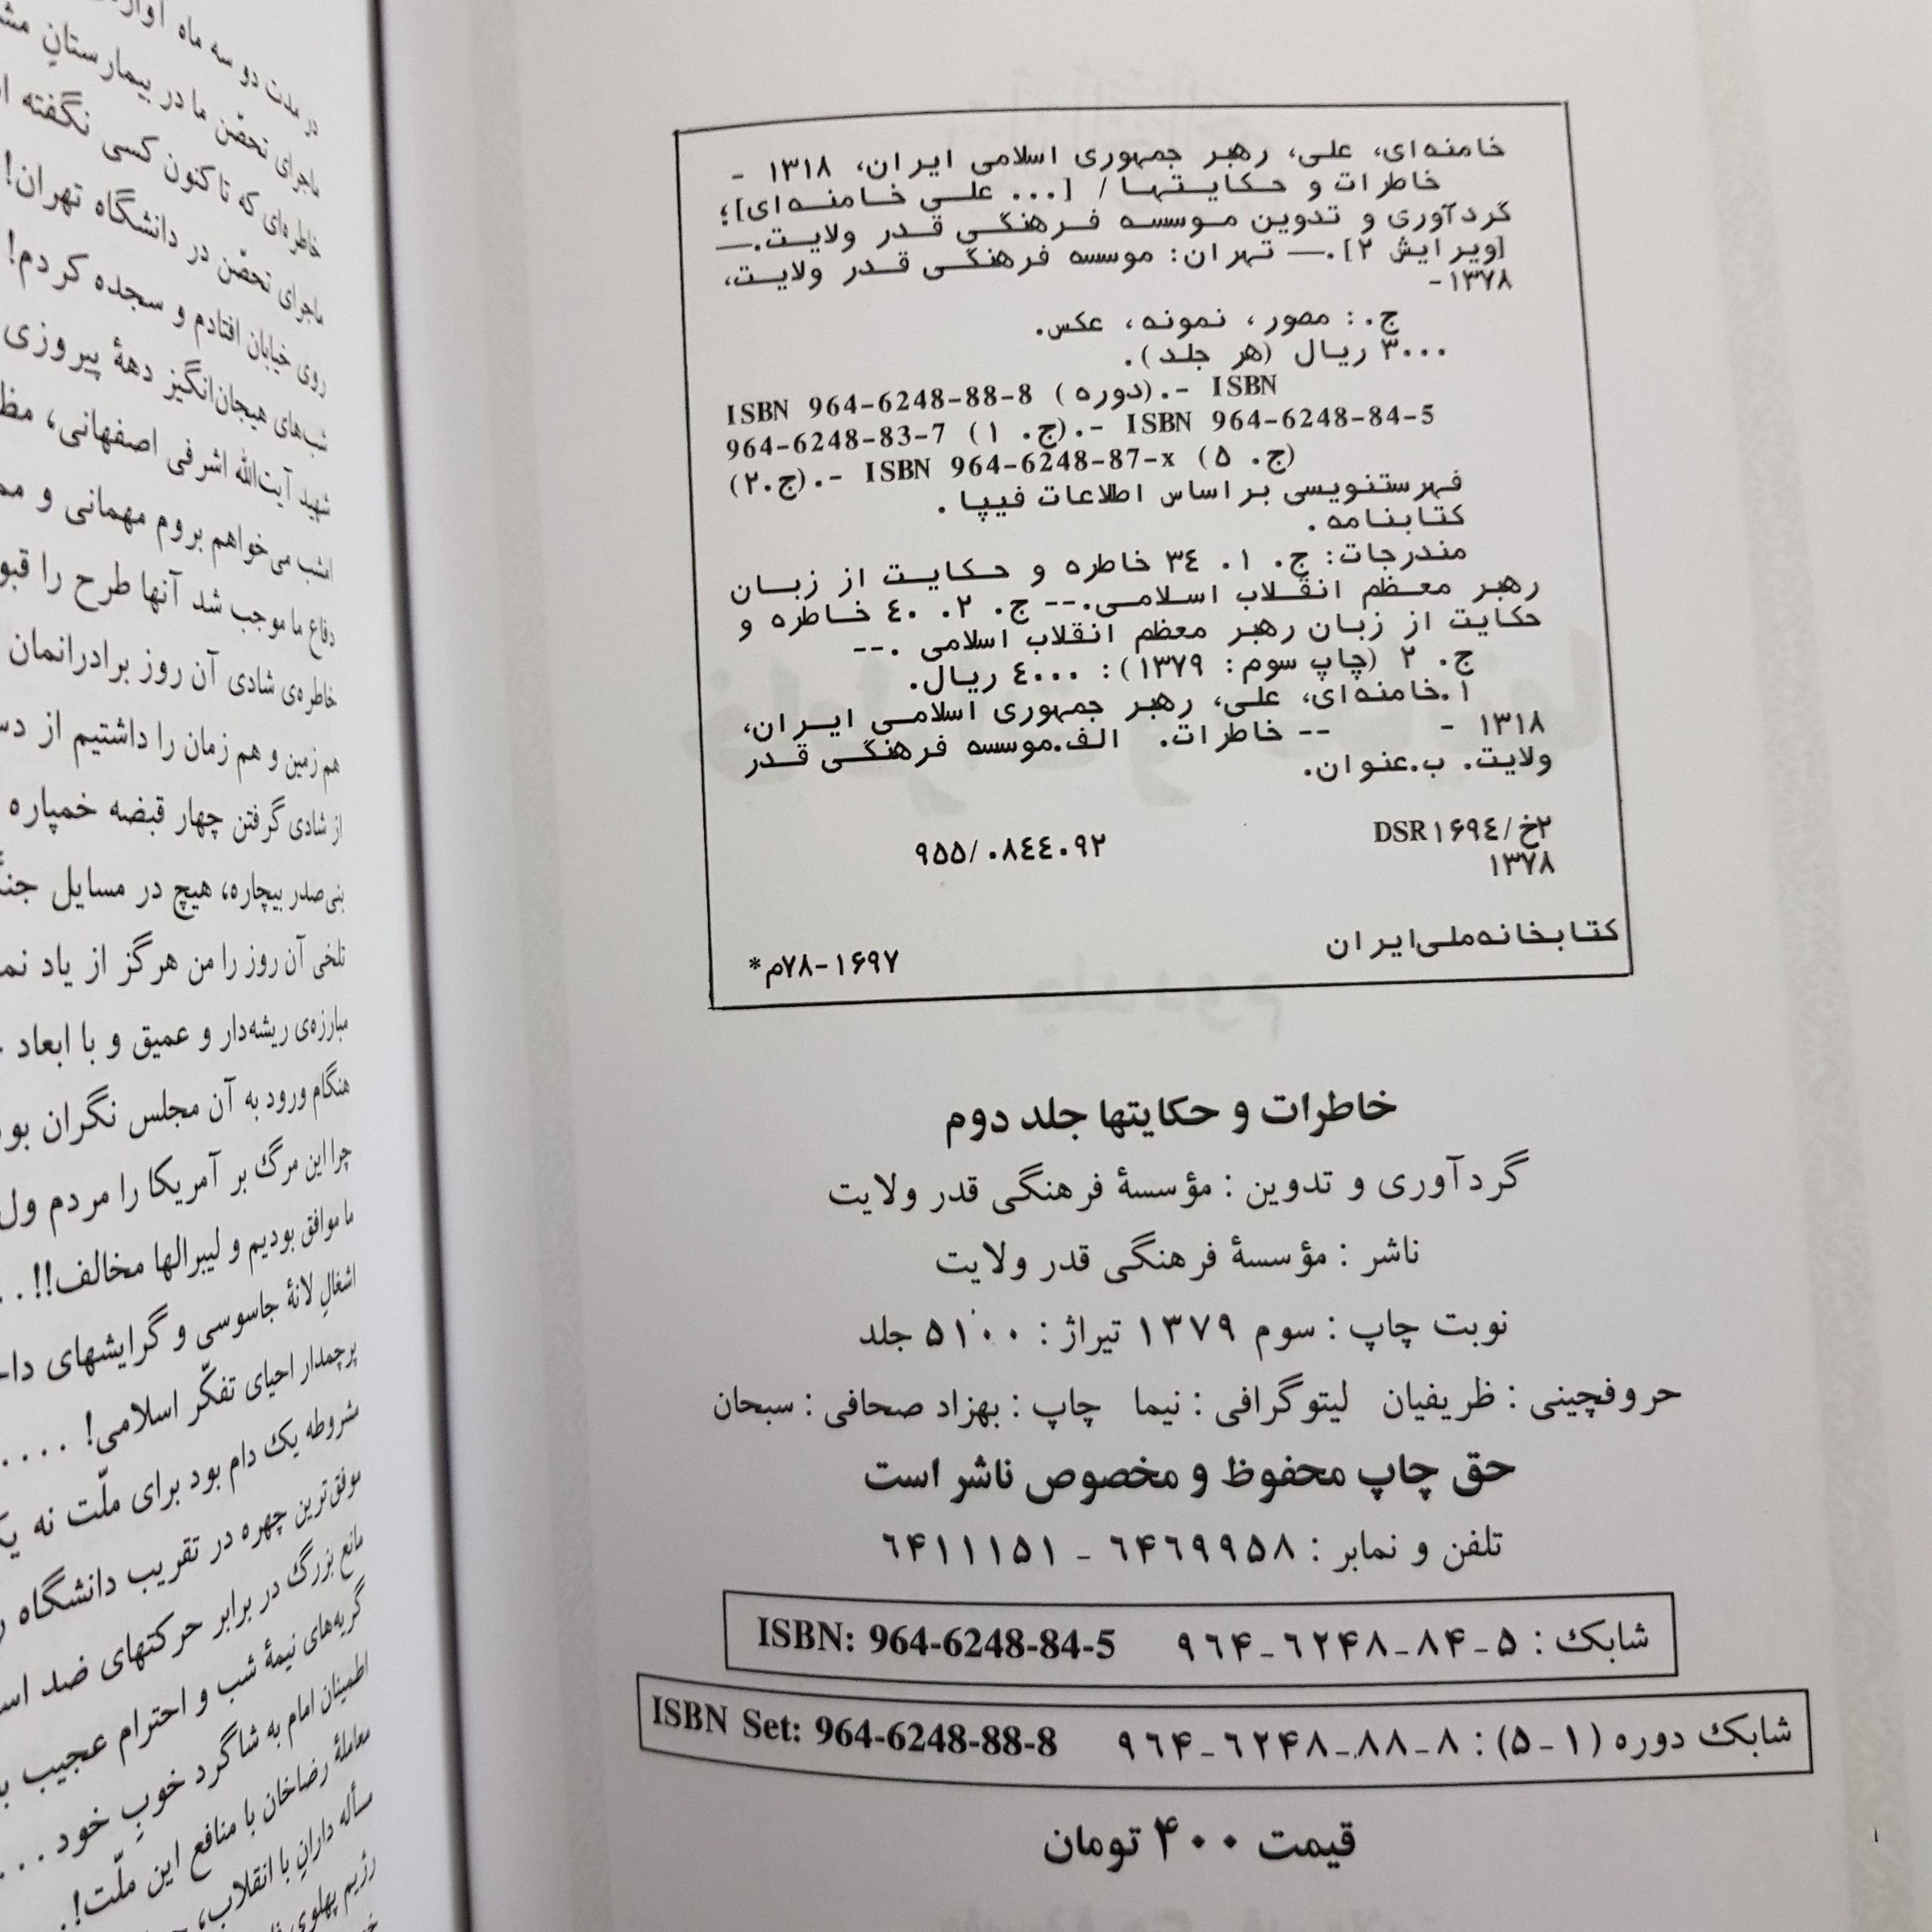 خامنه‌ای، علی، رهبر جمهوری اسلامی ایران، ۱۳۱۸ -
خاطرات و حکایتها / [... علی خامنه‌ای]؛
گردآوری و تدوین موسسه فرهنگی قدر ولایت.—
[ویرایش ۲].— تهران: موسسه فرهنگی قدر ولایت،
۱۳۷۸-
ج.: مصور، نمونه، عکس.
۳۰۰۰ ریال (هر جلد).
ISBN 964-6248-88-8 (دوره).- ISBN
964-6248-83-7 (ج. ۱).- ISBN 964-6248-84-5
(ج.۲).- ISBN 964-6248-87-x (ج. ۵)
فهرستنویسی براساس اطلاعات فیپا.
کتابنامه.
مندرجات: ج. ۱. ۳۴ خاطره و حکایت از زبان
رهبر معظم انقلاب اسلامی.-- ج. ۲. ۴۰ خاطره و
حکایت از زبان رهبر معظم انقلاب اسلامی .--
ج. ۲ (چاپ سوم: ۱۳۷۹): ۴۰۰۰ ریال.
۱.خامنه‌ای، علی، رهبر جمهوری اسلامی ایران،
۱۳۱۸ - -- خاطرات. الف.موسسه فرهنگی قدر
ولایت. ب.عنوان.
۲خ/DSR۱۶۹۴ ۹۵۵/۰۸۴۴۰۹۲
۱۳۷۸
کتابخانه‌ملی‌ایران ۷۸-۱۶۹۷م*
خاطرات و حکایتها جلد دوم
گردآوری و تدوین : مؤسسهٔ فرهنگی قدر ولایت
ناشر : مؤسسهٔ فرهنگی قدر ولایت
نوبت چاپ : سوم ۱۳۷۹ تیراژ : ۵۱۰۰ جلد
حروفچینی : ظریفیان لیتوگرافی : نیما چاپ : بهزاد صحافی : سبحان
حق چاپ محفوظ و مخصوص ناشر است
تلفن و نمابر : ۶۴۶۹۹۵۸ - ۶۴۱۱۱۵۱
شابک : ۵-۸۴-۶۲۴۸-۹۶۴ ISBN: 964-6248-84-5
شابک دوره (۱-۵) : ۸-۸۸-۶۲۴۸-۹۶۴ ISBN Set: 964-6248-88-8
قیمت ۴۰۰ تومان
در مدت دو سه ماه
ماجرای تحصّن ما در بیمارستانِ
خاطره‌ای که تاکنون کسی نگفته
ماجرای تحصّن در دانشگاه تهران!
روی خیابان افتادم و سجده کردم!
شب‌های هیجان‌انگیز دههٔ پیروزی
شهید آیت‌الله اشرفی اصفهانی،
امشب می‌خواهم بروم مهمانی و
دفاع ما موجب شد آنها طرح را
خاطره‌ی شادی آن روز برادرانمان
هم زمین و هم زمان را داشتیم از
از شادی گرفتن چهار قبضه خمپاره
بنی‌صدر بیچاره، هیچ در مسایل
تلخی آن روز را من هرگز از یاد
مبارزه‌ی ریشه‌دار و عمیق و با ابعاد
هنگام ورود به آن مجلس نگران
چرا این مرگ بر آمریکا را مردم
ما موافق بودیم و لیبرالها مخالف!! . .
اشغالِ لانهٔ جاسوسی و گرایشهای
پرچمدار احیای تفکّر اسلامی! . . . .
مشروطه یک دام بود برای ملّت نه
موفق‌ترین چهره در تقریب دانشگاه
مانع بزرگ در برابر حرکتهای ضد
گریه‌های نیمهٔ شب و احترام عجیب
اطمینان امام به شاگرد خوبِ خود . . .
معاملهٔ رضاخان با منافع این ملّت! .
مسأله دارانِ با انقلاب،
رژیم پهلوی